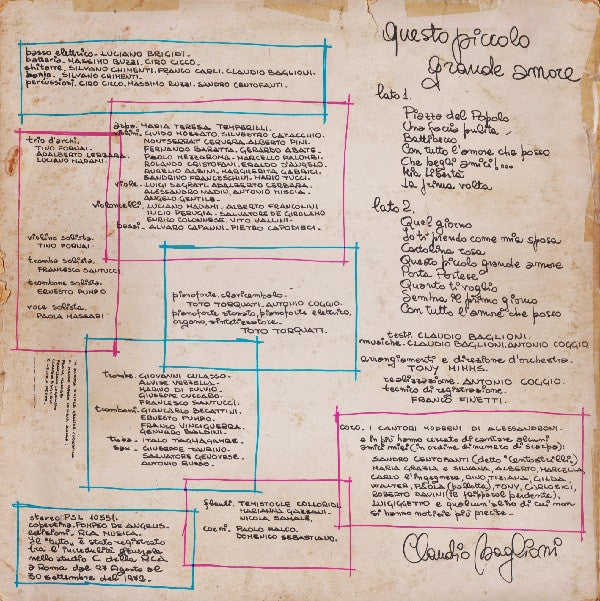 basso elettrico - LUCIANO BRIGIDI.
batteria - MASSIMO BUZZI, CIRO CICCO.
chitarre - SILVANO CHIMENTI, FRANCO CARLI, CLAUDIO BAGLIONI.
banjo - SILVANO CHIMENTI.
percussioni - CIRO CICCO, MASSIMO BUZZI, SANDRO CENTOFANTI.
trio d'archi.
TINO FORNAI
ADALBERTO CERBARA
LUCIANO MADAMI.
violino solista.
TINO FORNAI.
tromba solista.
FRANCESCO SANTUCCI.
trombone solista.
ERNESTO PUMPO.
voce solista.
PAOLA MASSARI
arpa - MARIA TERESA TEMPERILLI.
violini - GUIDO MOZZATO, SILVESTRO CATACCHIO.
MONTSERRAT CERVERA, ALBERTO PINI.
FERNANDO BARATTA, GERARDO ABATE.
PAOLO MEZZAROMA, MARCELLO PALOMBI.
ROLANDO CRISTOFANI, ERALDO D'ANGELO.
AURELIO ALBINI, MARGHERITA GABRICI.
SANDRINO FRANCESCHINI, MARIO TUCCI.
viole - LUIGI SAGRATI, ADALBERTO CERBARA.
ALESSANDRO NADIN, ANTONIO MISCIA.
ANGELO GENTILE.
violoncelli - LUCIANO MADAMI - ALBERTO FANGOLINI
INCIO PERUGIA - SALVATORE DE GIROLAMO
ENRICO COLONNESE, VITO VALLINI.
bassi - ALVARO CAPANNI, PIETRO CAPODIECI.
pianoforte, clavicembalo.
TOTO TORQUATI, ANTONIO COGGIO.
pianoforte stonato, pianoforte elettrico,
organo, sintetizzatore.
TOTO TORQUATI.
trombe - GIOVANNI CULASSO.
ALVISE
MARINO DI FULVIO.
GIUSEPPE CUCCARO.
FRANCESCO SANTUCCI.
tromboni - GIANCARLO BECATTINI.
ERNESTO PUMPO.
FRANCO VINCIGUERRA.
GENNARO BALDINI.
ITALO TAGLIACARNE.
GIUSEPPE TAURINO.
SALVATORE GENOVESE.
ANTONIO RUSSO.
flauti - TEMISTOCLE COLLORIDI.
MARIANNA
NICOLA SAMALE.
corni - PAOLO FALCO.
DOMENICO SEBASTIANO.
stereo: PSL 10551.
copertina: POMPEO DE ANGELIS.
edizioni - RCA MUSICA.
Il "tutto" è stato registrato
tra l'incredulità generale
nello studio C della RCA
a Roma dal 27 Agosto al
30 settembre del 1972.
Questo piccolo
grande amore
lato 1.
Piazza del Popolo
Una faccia pulita
Battibecco
Con tutto l'amore che posso
Che begli amici!...
Mia libertà
La prima volta
lato 2.
Quel giorno
Io ti prendo come mia sposa
Cartolina rosa
Questo piccolo grande amore
Porta Portese
Quanto ti voglio
Sembra il primo giorno
Con tutto l'amore che posso
testi - CLAUDIO BAGLIONI.
musiche - CLAUDIO BAGLIONI, ANTONIO COGGIO
arrangiamenti e direzione d'orchestra.
TONY MIMMS.
realizzazione - ANTONIO COGGIO.
tecnico di registrazione
FRANCO FINETTI.
coro - I CANTORI MODERNI DI ALESSANDRONI.
e in più hanno cercato di cantare alcuni
amici miei (in ordine di numero di scarpa):
SANDRO CENTOFANTI (detto "Centostrilli")
MARIA GRAZIA e SILVANA, ALBERTO, MARCELLA,
CARLO l'ingegnere, GINO TIZIANA, GILDA,
WALTER, PAOLA (paoletta), TONY, CARLOSICI,
ROBERTO DAVINI (IB flippard perdente),
LUIGIGETTO e qualcun'altro di cui non
si hanno notizie più precise.
Claudio Baglioni